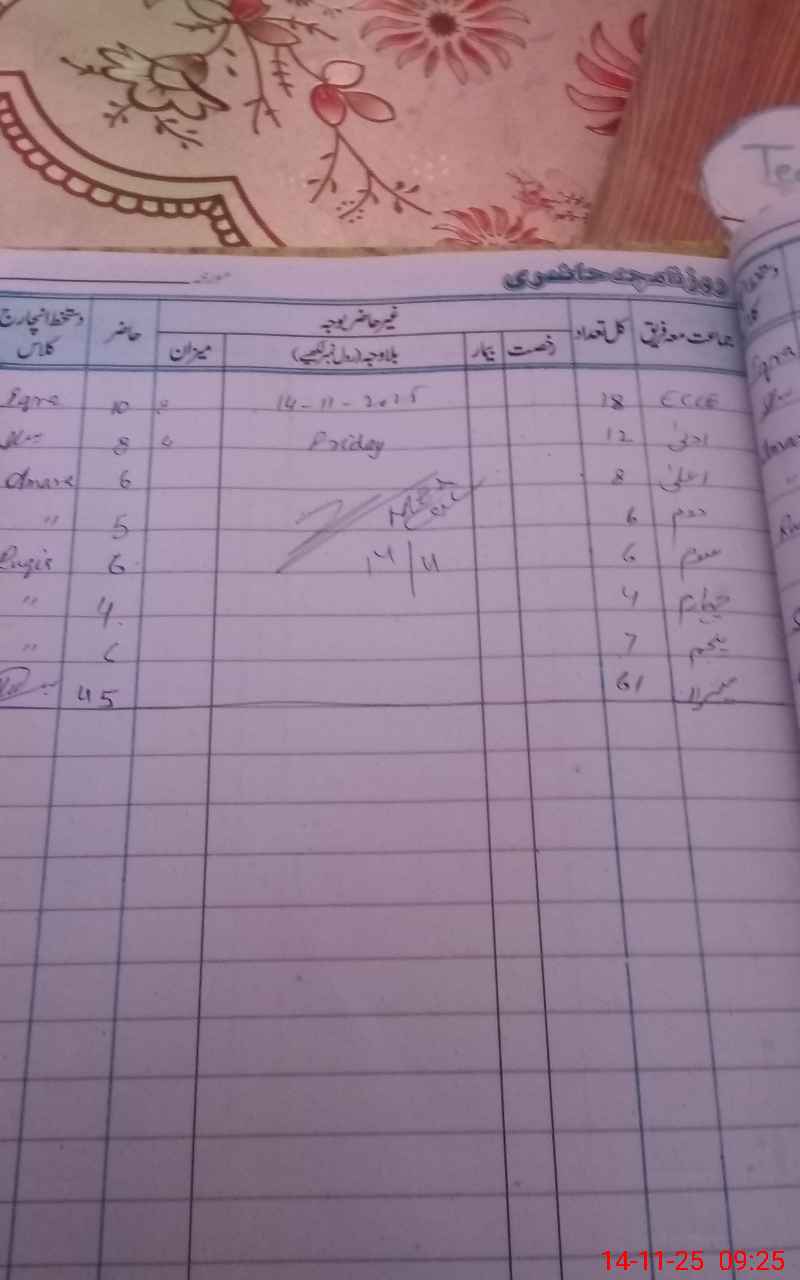 Tea
روزنامچہ حاضری
مورخہ
جماعت معہ فریق کل تعداد غیر حاضر بوجہ حاضر دستخط انچارج کلاس
رخصت بیمار بلاوجہ (رول نمبر لکھیے) میزان
ECCE 18 14-11-2025 10 Iqra
ادنیٰ 12 Friday 8
اعلیٰ 8 6 Amara
دوم 6 5 "
سوم 6 14/11 6
چہارم 4 4 "
پنجم 7 6 "
میزان 61 45
14-11-25 09:25